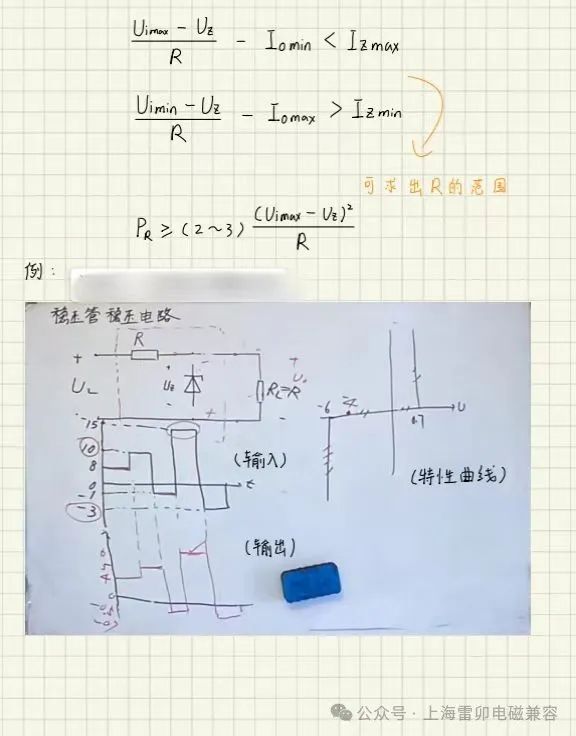 Uimax − Uz / R − Iomin < Izmax
Uimin − Uz / R − Iomax > Izmin
可求出R的范围
PR ≥ (2~3) (Uimax − Uz)² / R
例:
稳压管稳压电路
R
+
+
UL
+
Uz
-
RL=R
-
15
10
8
0
-1
-3
t
(输入)
-6
0.7
U
(特性曲线)
(输出)
6
5
4
0
公众号 · 上海雷卯电磁兼容